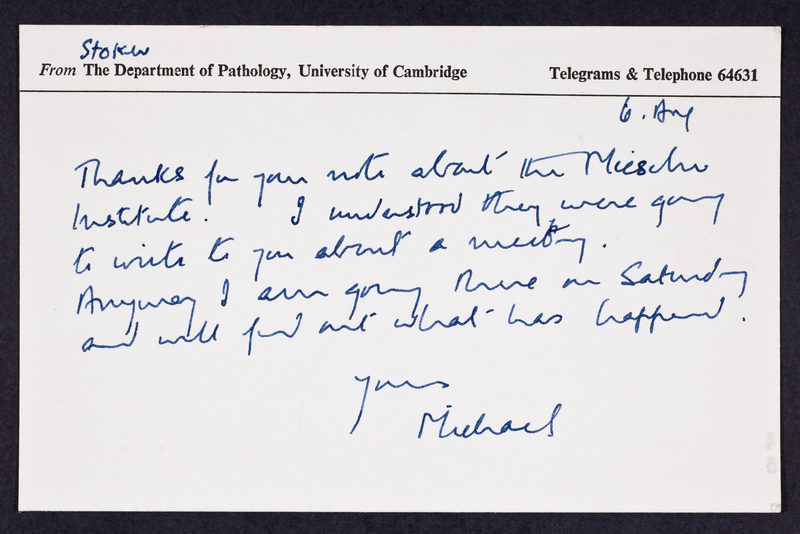 Stoker
From The Department of Pathology, University of Cambridge Telegrams & Telephone 64631
6. Aug
Thanks for your note about the Miescher
Institute. I understood they were going
to write to you about a meeting.
Anyway I am going there on Saturday
and will find out what has happened.
Yours
Michael